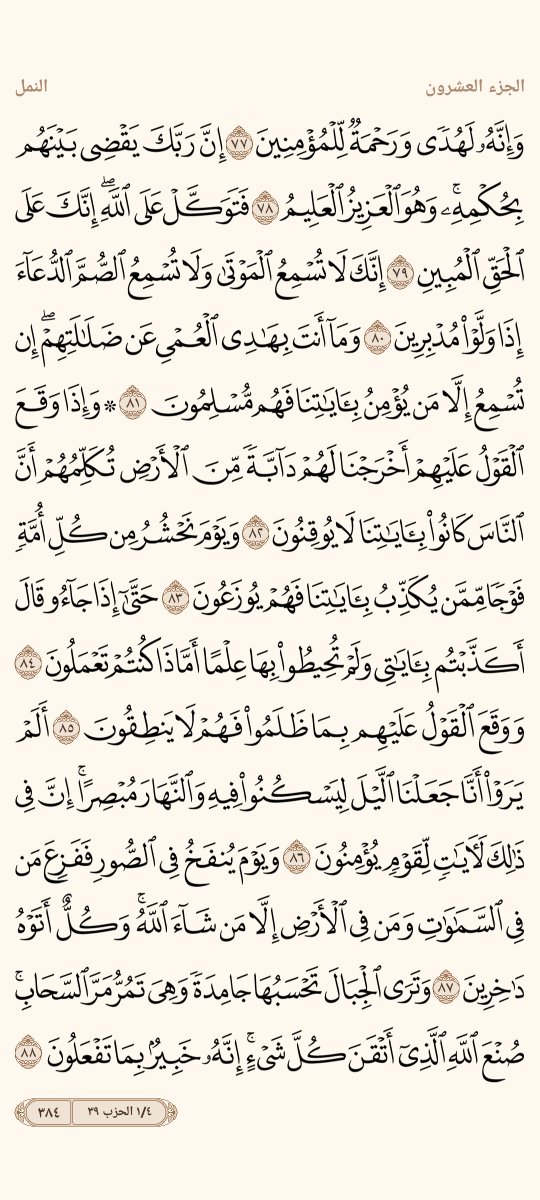 الجزء العشرون
النمل
وَإِنَّهُۥ لَهُدًى وَرَحْمَةٌ لِّلْمُؤْمِنِينَ ٧٧ إِنَّ رَبَّكَ يَقْضِى بَيْنَهُم
بِحُكْمِهِۦۚ وَهُوَ ٱلْعَزِيزُ ٱلْعَلِيمُ ٧٨ فَتَوَكَّلْ عَلَى ٱللَّهِۖ إِنَّكَ عَلَى
ٱلْحَقِّ ٱلْمُبِينِ ٧٩ إِنَّكَ لَا تُسْمِعُ ٱلْمَوْتَىٰ وَلَا تُسْمِعُ ٱلصُّمَّ ٱلدُّعَآءَ
إِذَا وَلَّوْا۟ مُدْبِرِينَ ٨٠ وَمَآ أَنتَ بِهَـٰدِى ٱلْعُمْىِ عَن ضَلَـٰلَتِهِمْۖ إِن
تُسْمِعُ إِلَّا مَن يُؤْمِنُ بِـَٔايَـٰتِنَا فَهُم مُّسْلِمُونَ ٨١ ۞ وَإِذَا وَقَعَ
ٱلْقَوْلُ عَلَيْهِمْ أَخْرَجْنَا لَهُمْ دَآبَّةً مِّنَ ٱلْأَرْضِ تُكَلِّمُهُمْ أَنَّ
ٱلنَّاسَ كَانُوا۟ بِـَٔايَـٰتِنَا لَا يُوقِنُونَ ٨٢ وَيَوْمَ نَحْشُرُ مِن كُلِّ أُمَّةٍ
فَوْجًا مِّمَّن يُكَذِّبُ بِـَٔايَـٰتِنَا فَهُمْ يُوزَعُونَ ٨٣ حَتَّىٰٓ إِذَا جَآءُو قَالَ
أَكَذَّبْتُم بِـَٔايَـٰتِى وَلَمْ تُحِيطُوا۟ بِهَا عِلْمًا أَمَّاذَا كُنتُمْ تَعْمَلُونَ ٨٤
وَوَقَعَ ٱلْقَوْلُ عَلَيْهِم بِمَا ظَلَمُوا۟ فَهُمْ لَا يَنطِقُونَ ٨٥ أَلَمْ
يَرَوْا۟ أَنَّا جَعَلْنَا ٱلَّيْلَ لِيَسْكُنُوا۟ فِيهِ وَٱلنَّهَارَ مُبْصِرًاۚ إِنَّ فِى
ذَٰلِكَ لَـَٔايَـٰتٍ لِّقَوْمٍ يُؤْمِنُونَ ٨٦ وَيَوْمَ يُنفَخُ فِى ٱلصُّورِ فَفَزِعَ مَن
فِى ٱلسَّمَـٰوَٰتِ وَمَن فِى ٱلْأَرْضِ إِلَّا مَن شَآءَ ٱللَّهُۚ وَكُلٌّ أَتَوْهُ
دَٰخِرِينَ ٨٧ وَتَرَى ٱلْجِبَالَ تَحْسَبُهَا جَامِدَةً وَهِىَ تَمُرُّ مَرَّ ٱلسَّحَابِۚ
صُنْعَ ٱللَّهِ ٱلَّذِىٓ أَتْقَنَ كُلَّ شَىْءٍۚ إِنَّهُۥ خَبِيرٌۢ بِمَا تَفْعَلُونَ ٨٨
١/٤ الحزب ٣٩
٣٨٤